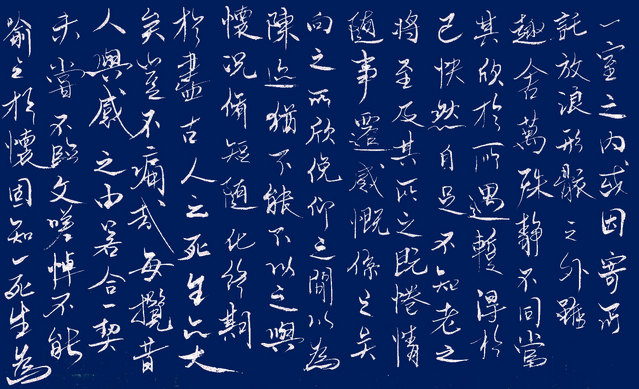 一室之内或因寄所
託放浪形骸之外雖
趣舍萬殊静不同當
其欣於所遇暫得於
己快然自足不知老之
將至及其所之既惓情
隨事遷感慨係之矣
向之所欣俛仰之間以為
陳迹猶不能不以之興
懷況脩短隨化終期
於盡古人云死生亦大
矣豈不痛哉每攬昔
人興感之由若合一契
未嘗不臨文嗟悼不能
喻之於懷固知一死生為